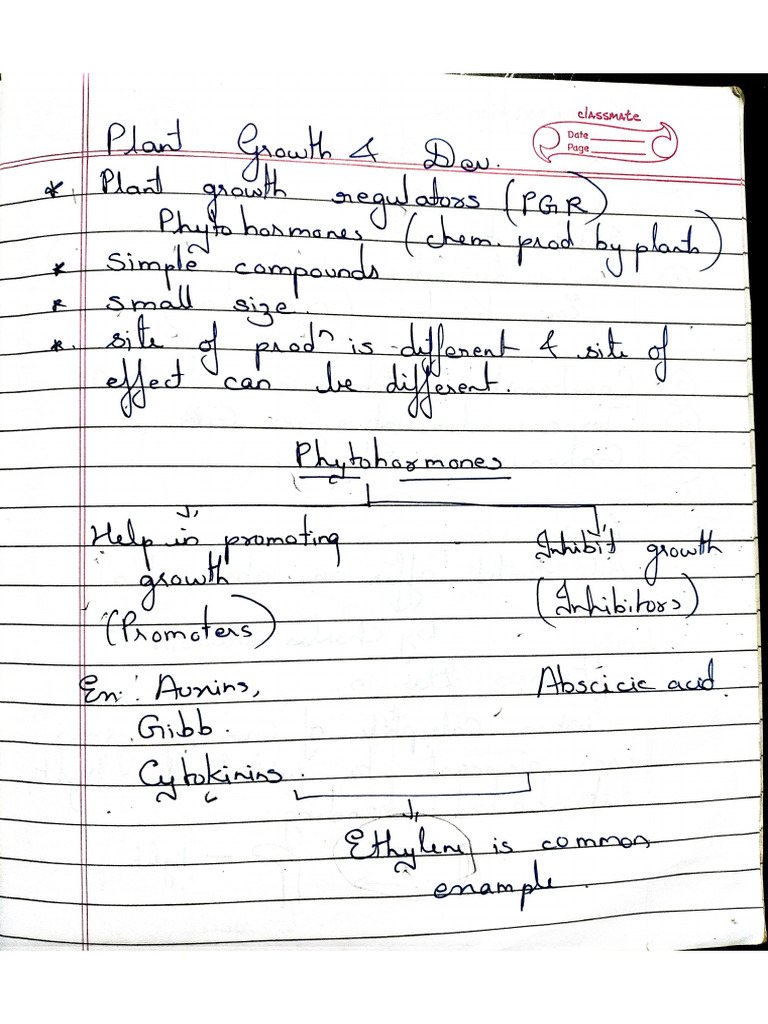 classmate
Date
Page
Plant Growth & Dev.
* Plant growth regulators (PGR)
Phytohormones (chem. prod by plants)
* Simple compounds
* Small size.
* site of prodⁿ is different & site of
effect can be different.
Phytohormones
Help in promoting
growth
(Promoters)
Inhibit growth
(Inhibitors)
Ex: Auxins,
Gibb.
Cytokinins.
Abscicic acid.
Ethylene is common
example.